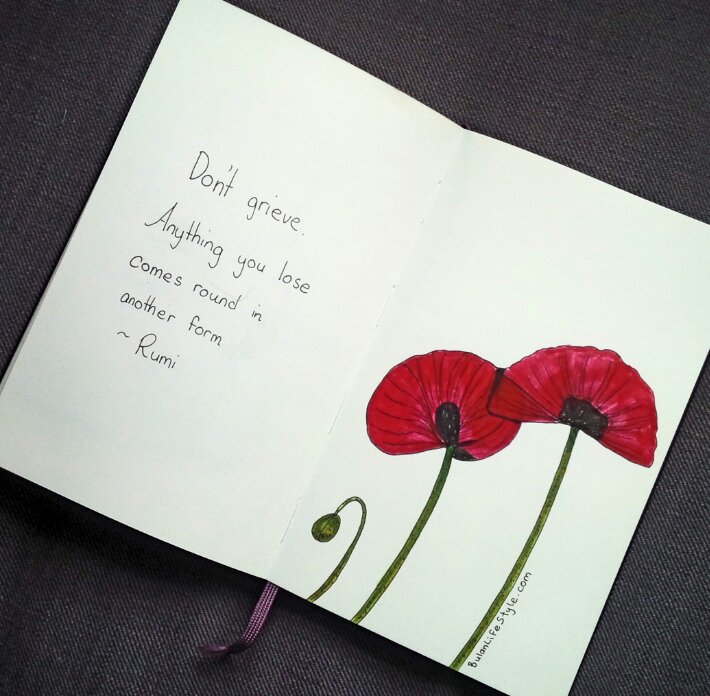 Don't grieve.
Anything you lose
comes round in
another form
~ Rumi
BulanLifeStyle.com